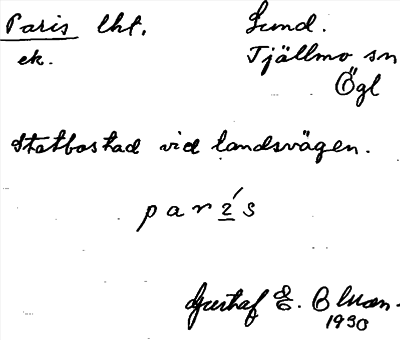 Paris lht. Lund.
ek. Tjällmo sn
Ögl
Statbostad vid landsvägen.
parí̲s
Gustaf E. Olson.
1930